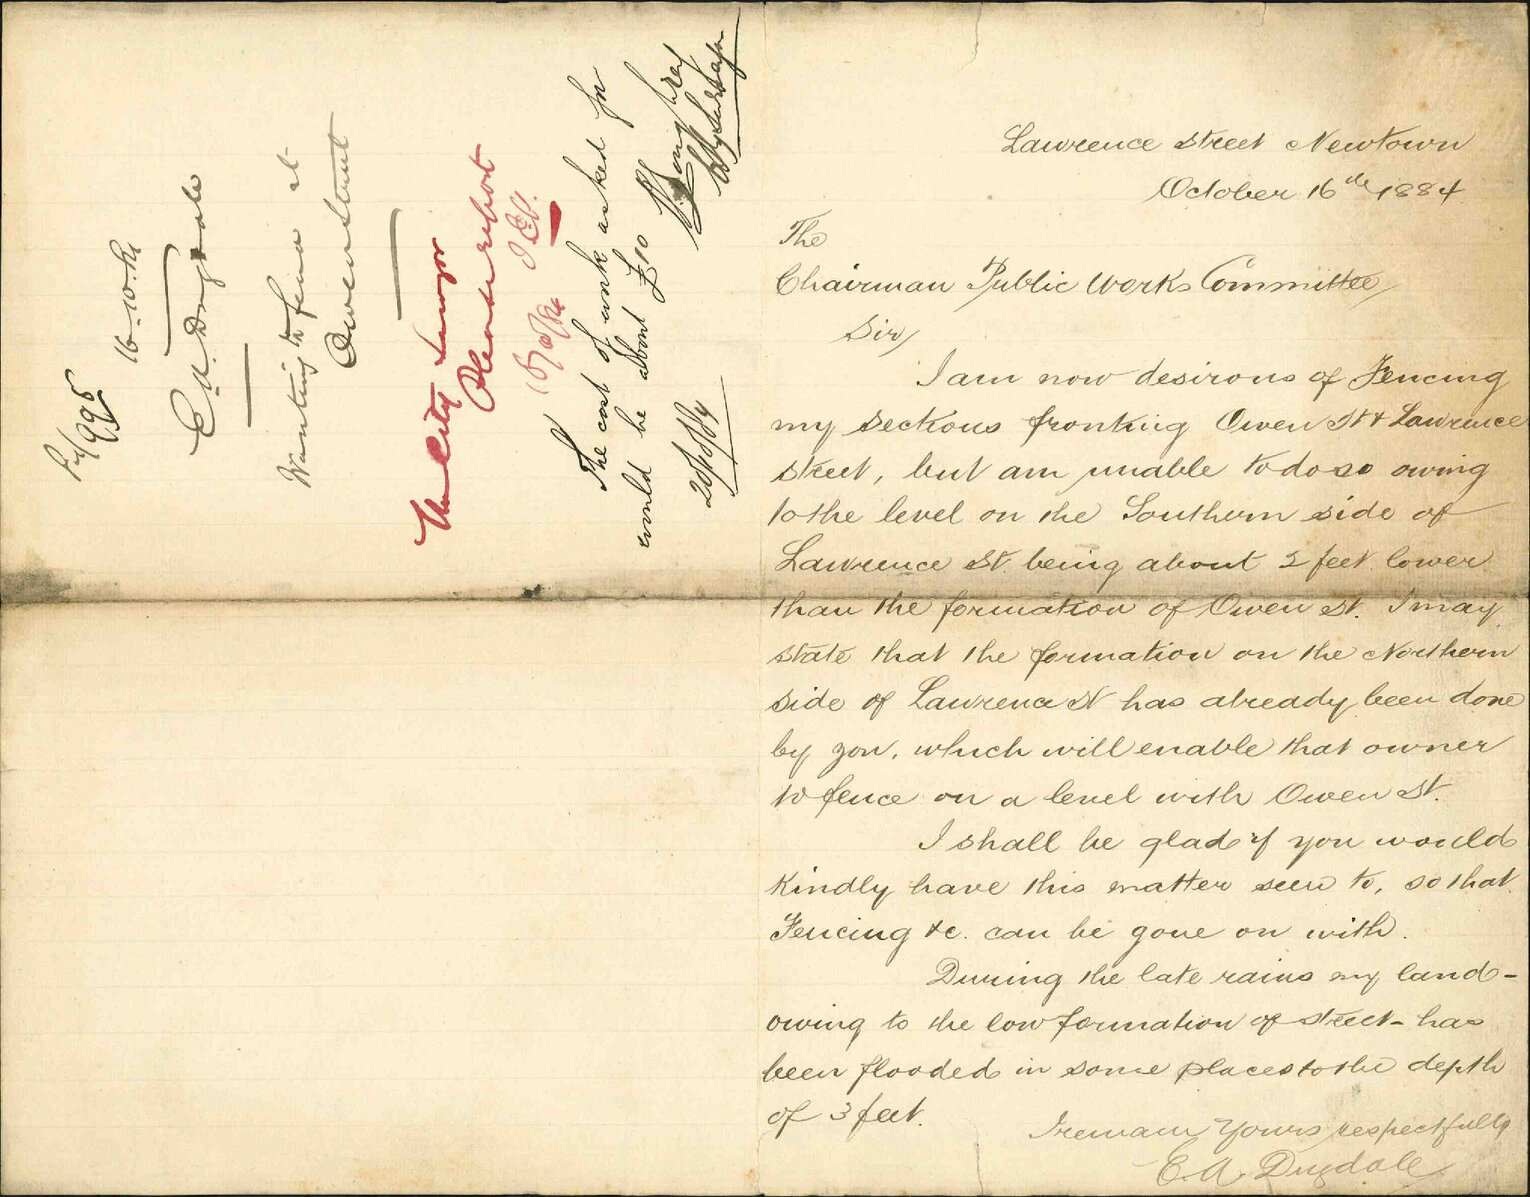 Lawrence Street Newtown
October 16th 1884
The
Chairman Public Works Committee
Sir,
I am now desirous of Fencing
my sections fronting Owen St & Lawrence
street, but am unable to do so owing
to the level on the Southern side of
Lawrence St. being about 2 feet lower
than the formation of Owen St. I may
state that the formation on the Northern
side of Lawrence St has already been done
by you, which will enable that owner
to fence on a level with Owen St.
I shall be glad if you would
kindly have this matter seen to, so that
Fencing &c. can be gone on with.
During the late rains my land -
owing to the low formation of street - has
been flooded in some places to the depth
of 3 feet.
I remain Yours respectfully
E. A. Dugdale
995
16-10-84
E. A. Dugdale
Wanting to fence at
Owen Street
The City Surveyor
Please report
The cost of work asked for
would be about £10
20/10/84
City Surveyor